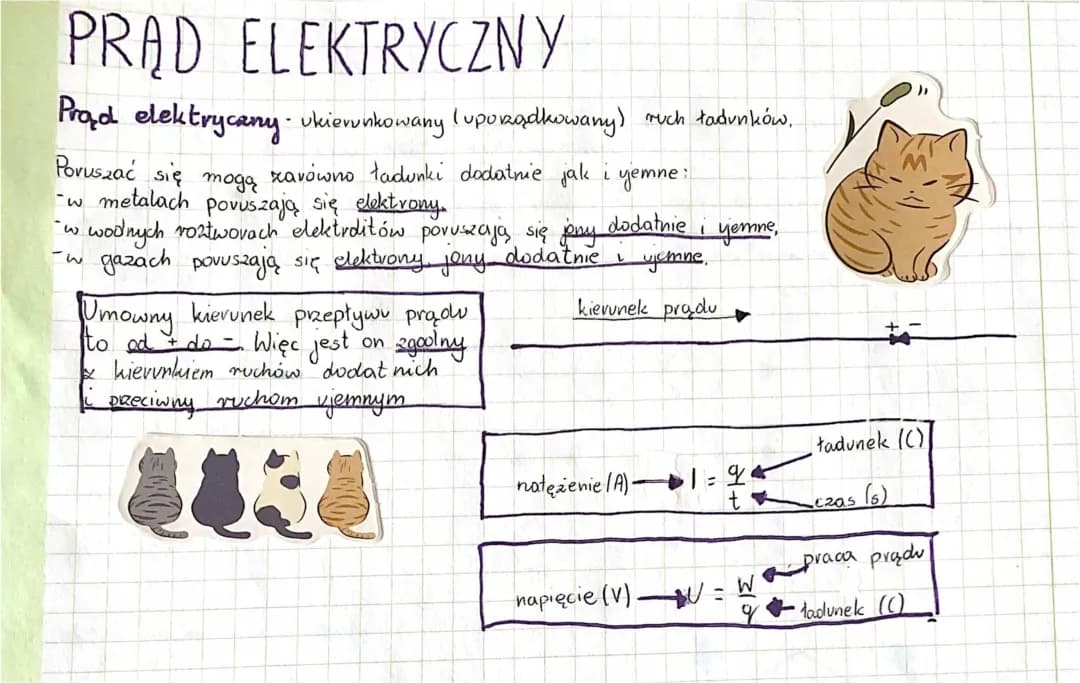 PRĄD ELEKTRYCZNY
Prąd elektryczny - ukierunkowany (uporządkowany) ruch ładunków.
Poruszać się mogą zarówno ładunki dodatnie jak i ujemne:
- w metalach poruszają się elektrony.
- w wodnych roztworach elektrolitów poruszają się jony dodatnie i ujemne.
- w gazach poruszają się elektrony, jony dodatnie i ujemne.
Umowny kierunek przepływu prądu
to od + do -. Więc jest on zgodny
z kierunkiem ruchów dodatnich
i przeciwny ruchom ujemnym
kierunek prądu
+ -
ładunek (C)
natężenie (A) → I = q/t
czas (s)
praca prądu
napięcie (V) → U = W/q
ładunek (C)